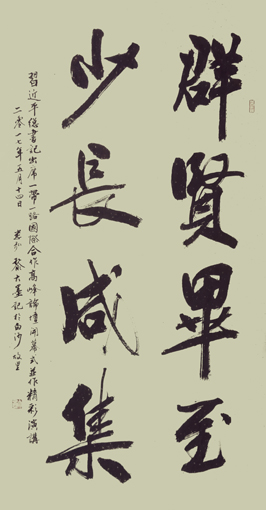 群賢畢至
少長咸集
習近平總書記出席一帶一路國際合作高峰論壇開幕式並作精彩演講
二零一七年五月十四日 記於白沙